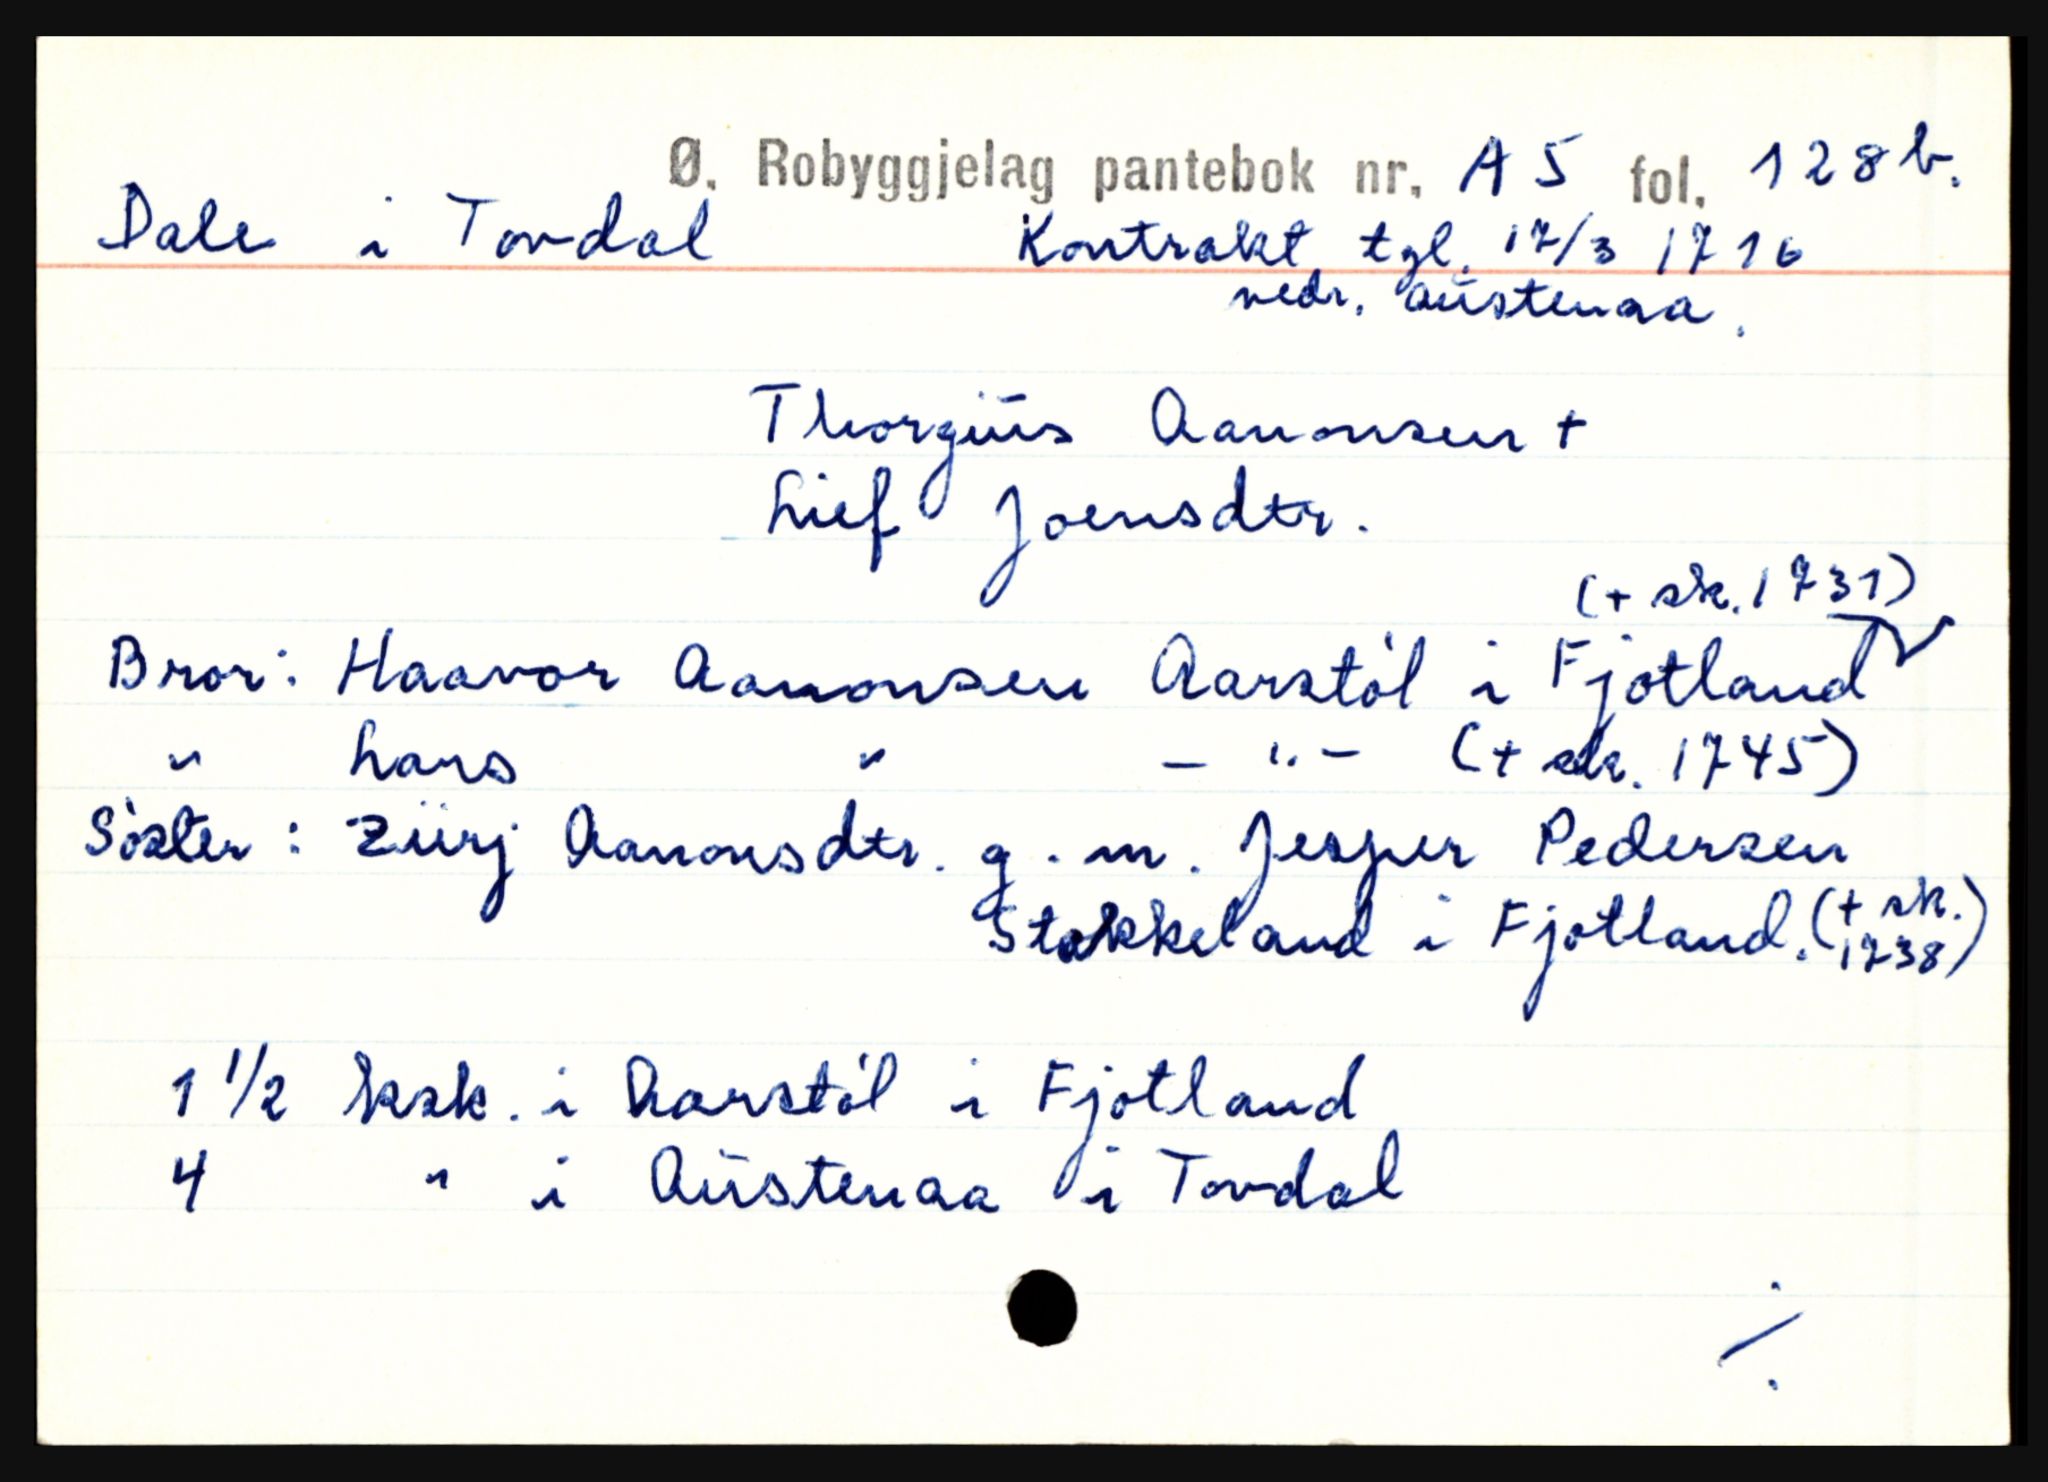 Ø. Robyggjelag pantebok nr. A 5 fol. 128 b.
Dale i Tovdal Kontrakt tgl. 17/3 1716
vedr. Aŭstenaa.
Thorgŭs Aanonsen +
Lief Joensdtr.
(+ sk. 1731)
Bror: Haavor Aanonsen Aarstøl i Fjotland
" Lars " - " - (+ sk. 1745)
Søster: Zürj Aanonsdtr. g. m. Jesper Pedersen
Stokkeland i Fjotland. (+ sk. 1738)
1 1/2 ksk. i Aarstøl i Fjotland
4 " i Aŭstenaa i Tovdal
./.